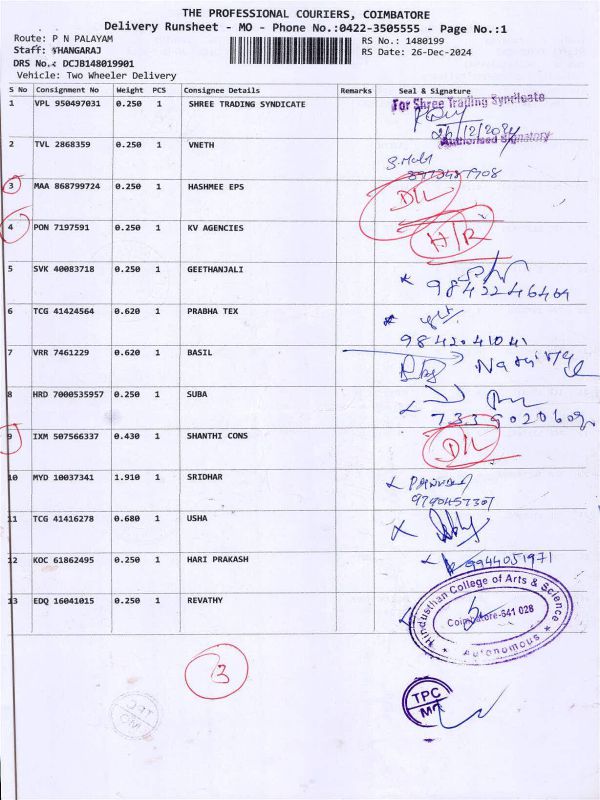 THE PROFESSIONAL COURIERS, COIMBATORE
Delivery Runsheet - MO - Phone No.:0422-3505555 - Page No.:1
Route: P N PALAYAM
RS No.: 1480199
Staff: THANGARAJ
RS Date: 26-Dec-2024
DRS No.: DCJB148019901
Vehicle: Two Wheeler Delivery
S No Consignment No Weight PCS Consignee Details Remarks Seal & Signature
1 VPL 950497031 0.250 1 SHREE TRADING SYNDICATE For Shree Trading Syndicate
26/12/2024
Authorised Signatory
2 TVL 2868359 0.250 1 VNETH
3 MAA 868799724 0.250 1 HASHMEE EPS D/L
4 PON 7197591 0.250 1 KV AGENCIES H/R
5 SVK 40083718 0.250 1 GEETHANJALI
6 TCG 41424564 0.620 1 PRABHA TEX
9842041041
7 VRR 7461229 0.620 1 BASIL
8 HRD 7000535957 0.250 1 SUBA
9 IXM 507566337 0.430 1 SHANTHI CONS D/L
10 MYD 10037341 1.910 1 SRIDHAR
11 TCG 41416278 0.680 1 USHA
12 KOC 61862495 0.250 1 HARI PRAKASH 9944051971
13 EDQ 16041015 0.250 1 REVATHY
Hindusthan College of Arts & Science
Coimbatore-641 028
* Autonomous *
3
TPC
MO
TPC
MO